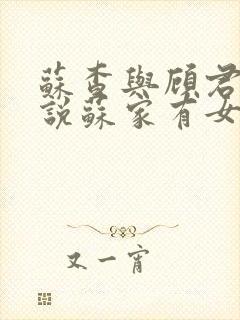 蘇杳與顧君
說蘇家有女
又一宵